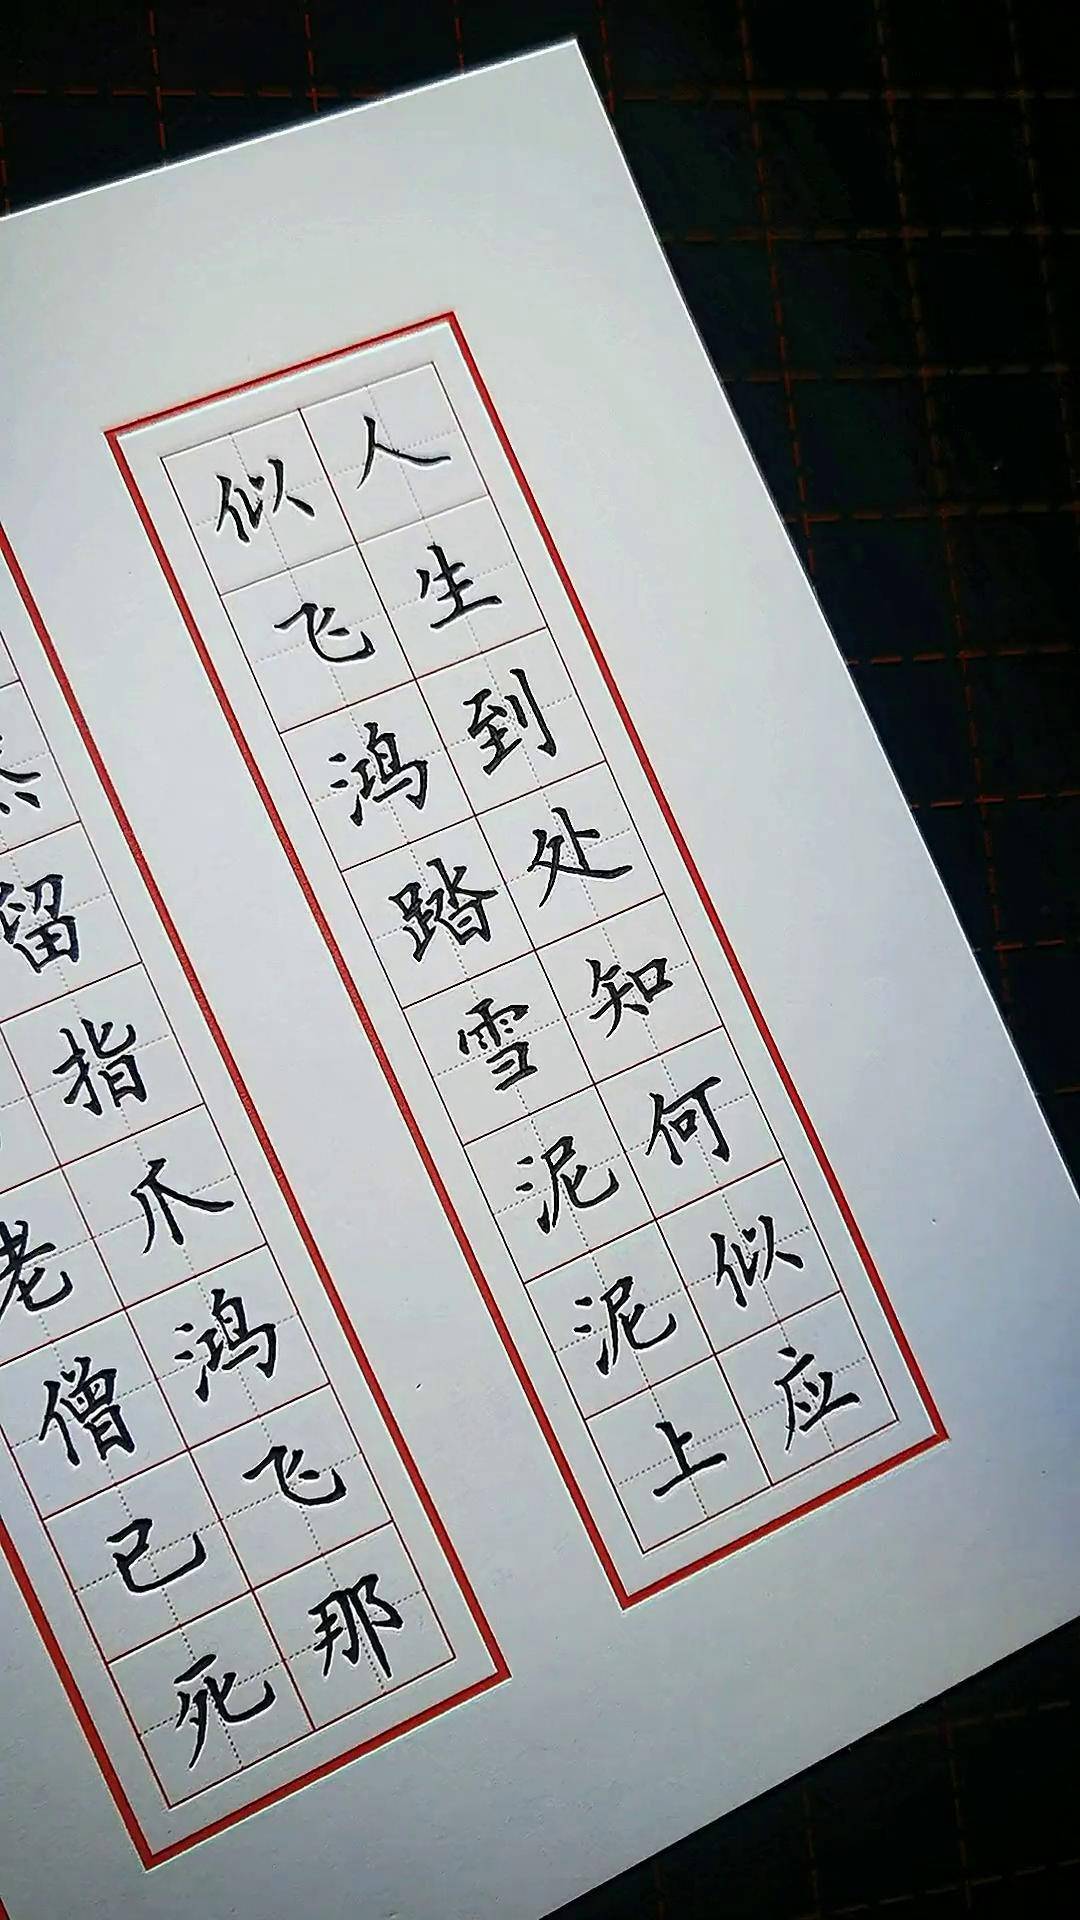 人生到处知何似应
似飞鸿踏雪泥泥上
然留指爪鸿飞那
老僧已死